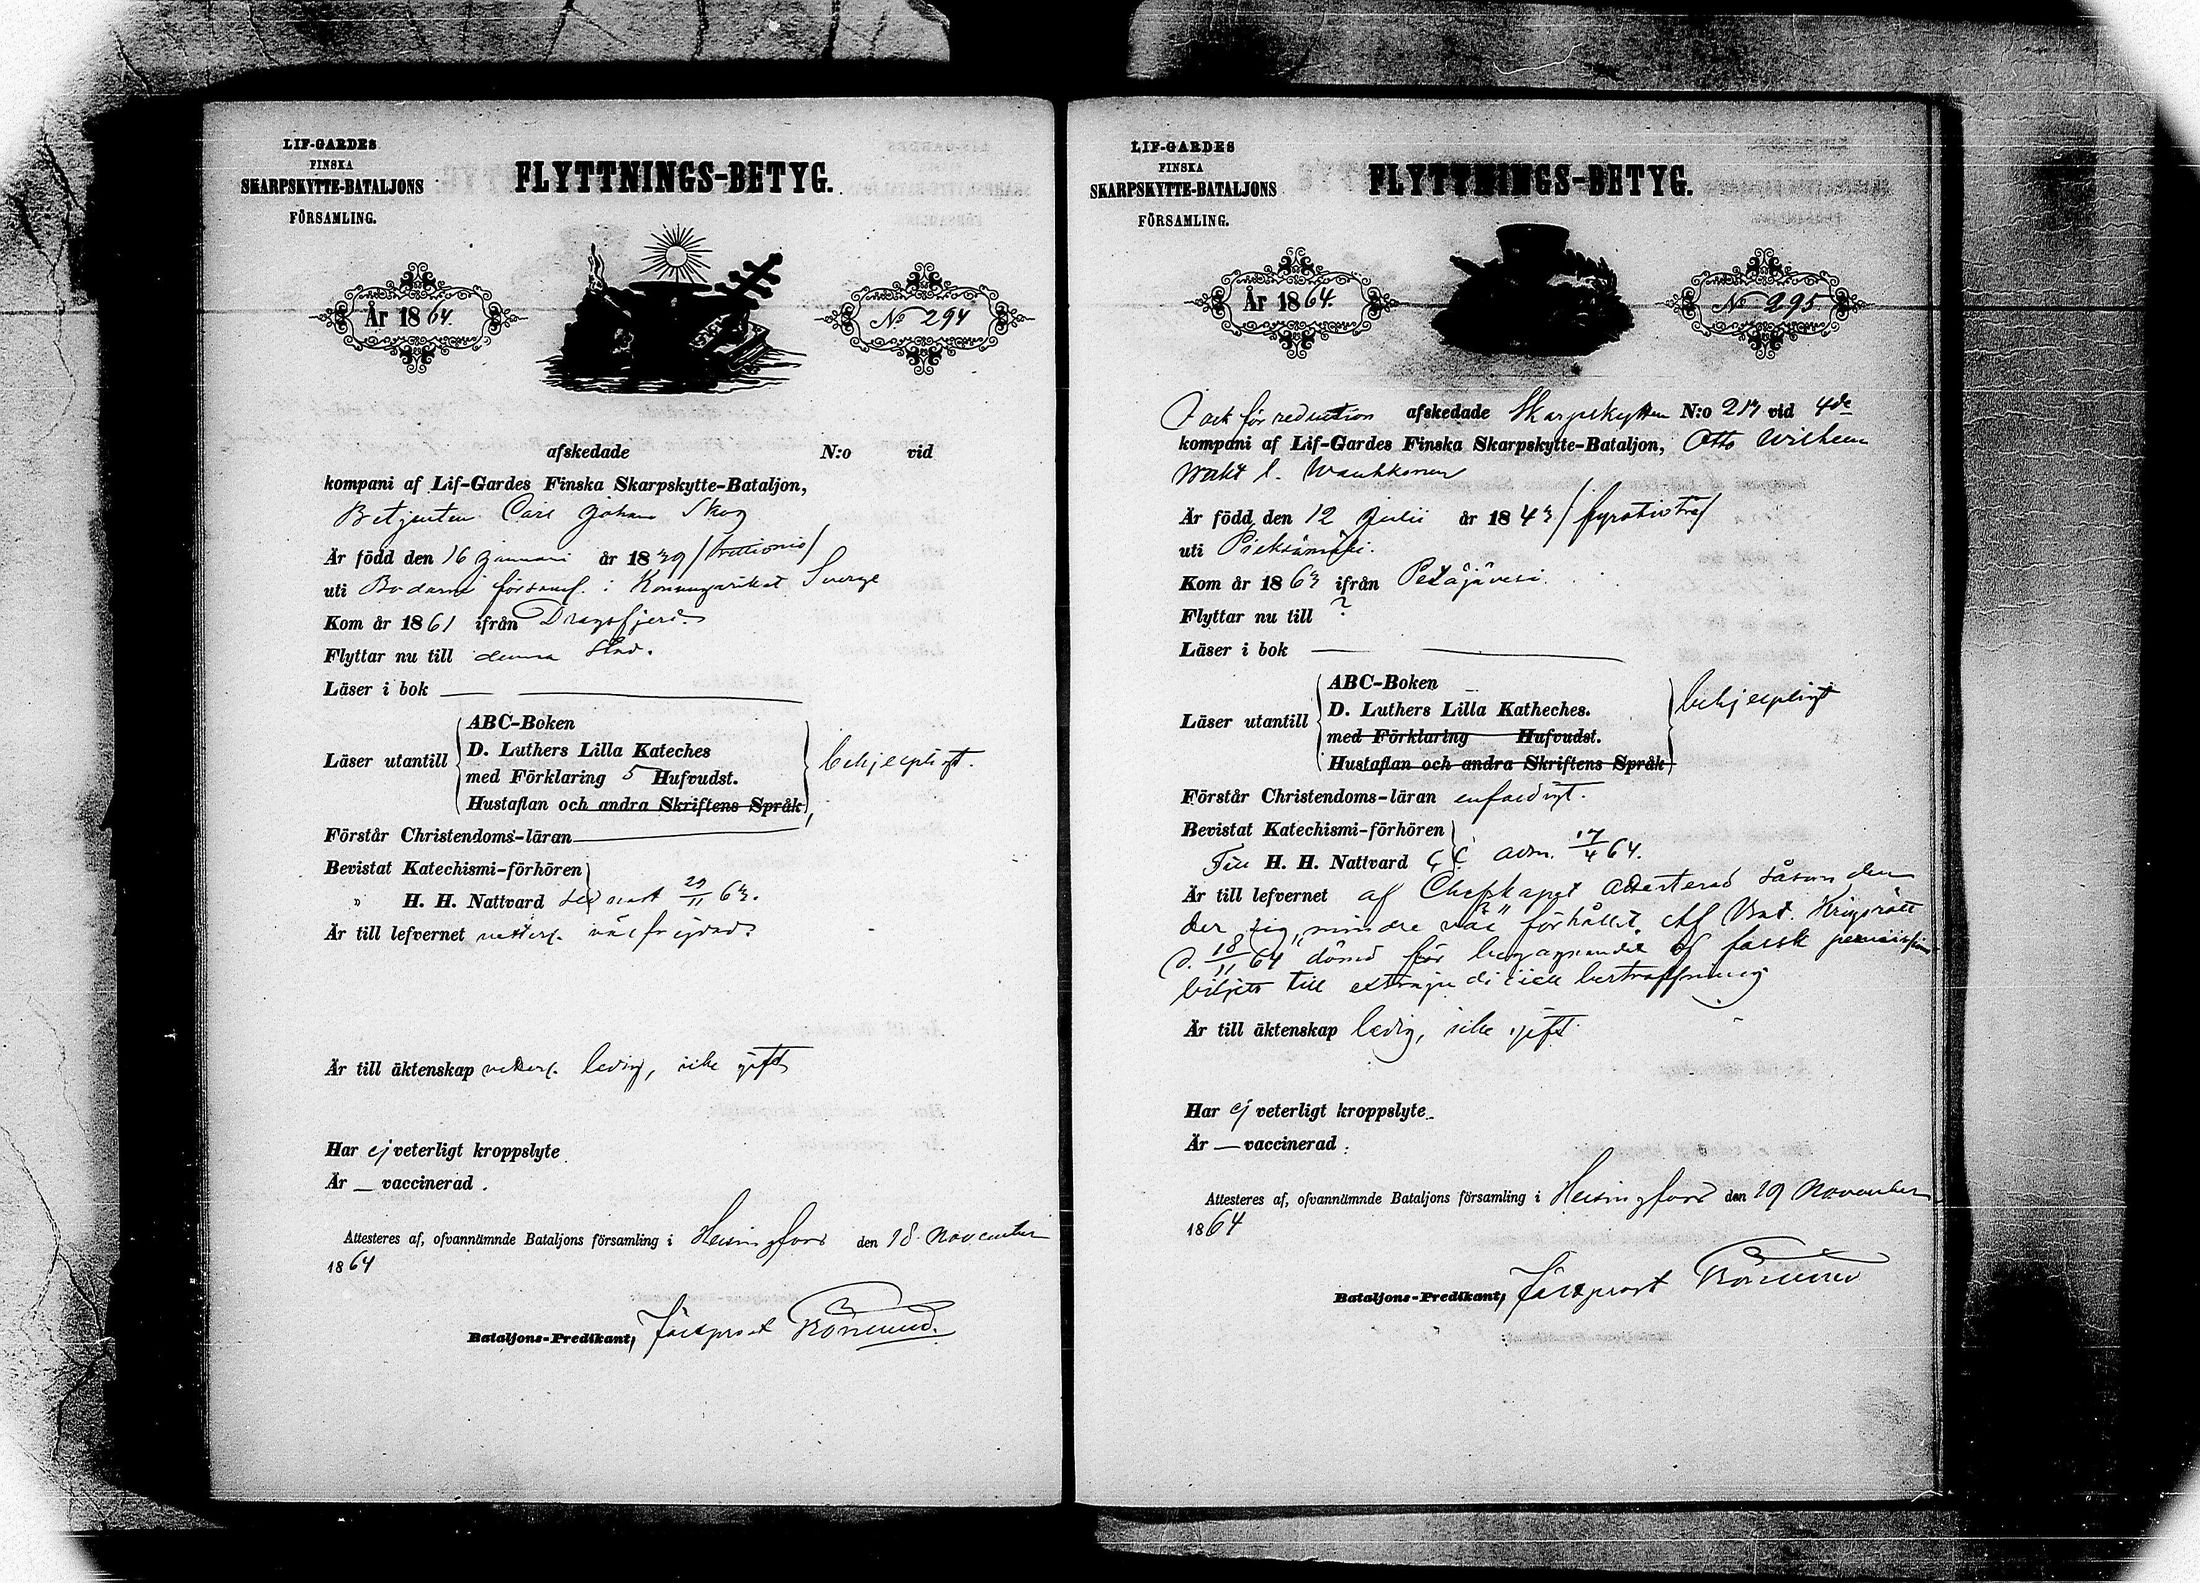 LIF-GARDES
FINSKA
SKARPSKYTTE-BATALJONS
FÖRSAMLING.
FLYTTNINGS-BETYG.
År 1864.
No 294
afskedade N:o vid
kompani af Lif-Gardes Finska Skarpskytte-Bataljon,
Betjenten Carl Johan Skog
Är född den 16 Januari år 1839
uti församl. i Konungariket Sverge
Kom år 1861 ifrån Dragsfjerd
Flyttar nu till denna Stad.
Läser i bok
Läser utantill
ABC-Boken
D. Luthers Lilla Kateches
med Förklaring 5 Hufvudst.
Hustaflan och andra Skriftens Språk
behjelpligt.
Förstår Christendoms-läran
Bevistat Katechismi-förhören
" H. H. Nattvard sednast 29/11 63.
Är till lefvernet väl frejdad.
Är till äktenskap ledig, icke gift
Har ej veterligt kroppslyte
Är — vaccinerad.
Attesteres af, ofvannämnde Bataljons församling i Helsingfors den 18 November
1864
Bataljons-Predikant, Fältprost
LIF-GARDES
FINSKA
SKARPSKYTTE-BATALJONS
FÖRSAMLING.
FLYTTNINGS-BETYG.
År 1864.
No 295
för reduction afskedade Skarpskytten N:o 213 vid 4de
kompani af Lif-Gardes Finska Skarpskytte-Bataljon, Otto Wilhelm
Wakt l. Wauhkonen
Är född den 12 Julii år 1843 /fyrationtre/
uti Pieksämäki.
Kom år 1863 ifrån Petäjävesi.
Flyttar nu till ?
Läser i bok
Läser utantill
ABC-Boken
D. Luthers Lilla Katheches.
med Förklaring Hufvudst.
Hustaflan och andra Skriftens Språk
behjelpligt
Förstår Christendoms-läran enfaldigt.
Bevistat Katechismi-förhören
Till H. H. Nattvard adm. 17/4 64.
Är till lefvernet af Chefskapet attesterad såsom den
der sig "mindre väl" förhållit. Af Bat. Krigsrätt
d. 18/11 64 dömd för begagnandet af falsk permissions
biljett till extrajudiciell bestraffning
Är till äktenskap ledig, icke gift
Har ej veterligt kroppslyte
Är — vaccinerad.
Attesteres af, ofvannämnde Bataljons församling i Helsingfors den 19 November
1864
Bataljons-Predikant, Fältprost